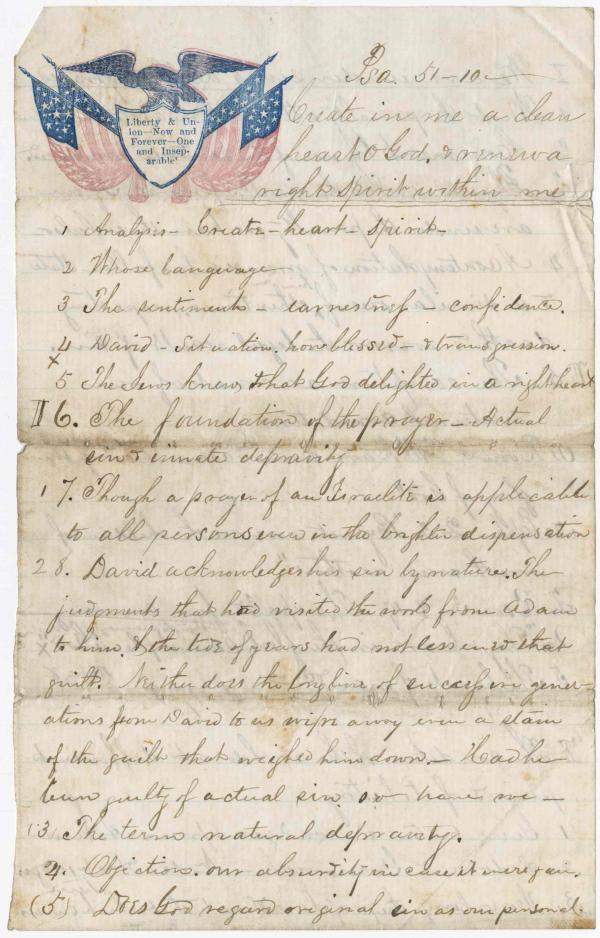 Liberty & Un-
ion—Now and
Forever—One
and Insep-
arable!
Psa. 51-10
Create in me a clean
heart O God, & renew a
right spirit within me
1 Analysis - Create - heart - Spirit -
2 Whose language
3 The sentiment - earnestness - confidence.
4 David - Situation. how blessed - & transgression.
x
5 The Jews knew that God delighted in a right heart
II 6. The foundation of the prayer - Actual
sin & innate depravity
1 7. Though a prayer of an Israelite is applicable
to all persons even in the brighter dispensation
2 8. David acknowledges his sin by nature. The
judgments that had visited the world from Adam
to him, & the tide of years had not lessened that
guilt. Neither does the long line of successive gener-
ations from David to us wipe away even a stain
of the guilt that weighed him down. - Had he
been guilty of actual sin. or have we -
(3) The term natural depravity.
4. Objection. our absurdity in case it were
(5) Does God regard original sin as our personal.